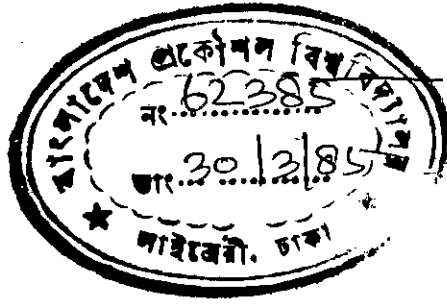 বাংলাদেশ প্রকৌশল বিশ্ববিদ্যালয়
নং..62385
তাং..30/3/85
লাইব্রেরী, ঢাকা